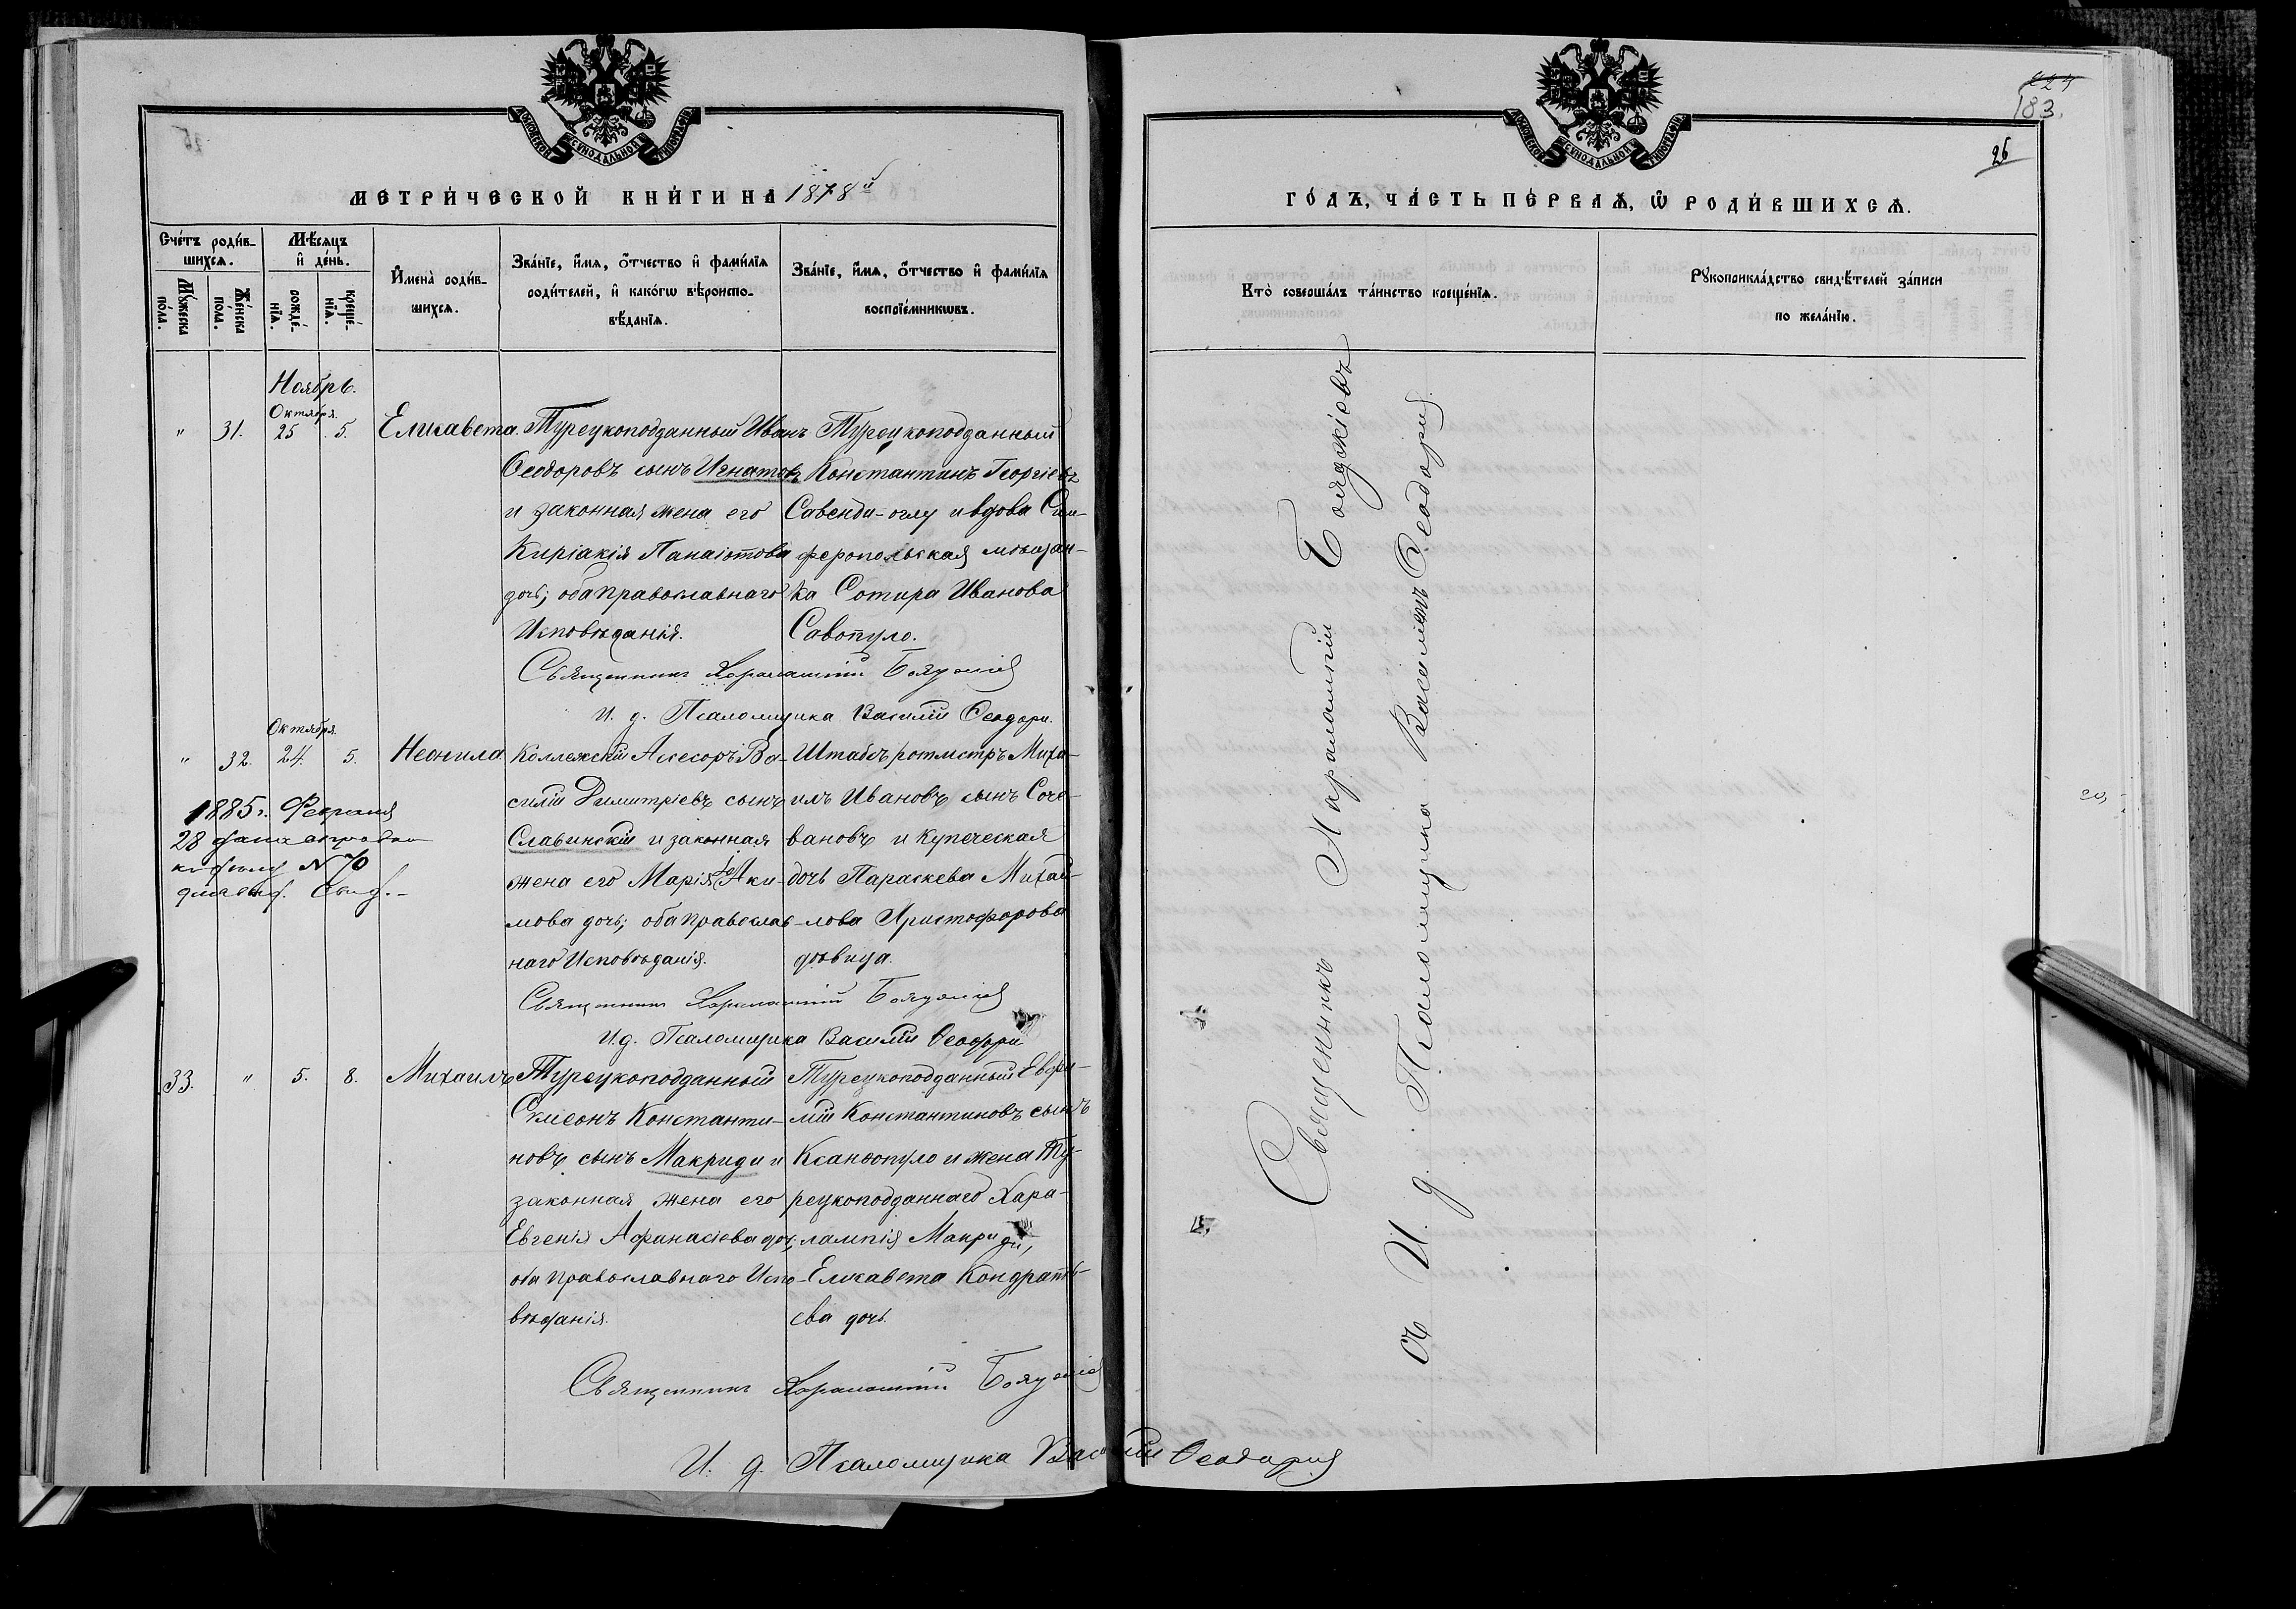 МОСКОВСКОЙ СѴНОДАЛЬНОЙ ТИПОГРАФІИ
МЕТРИ́ЧЕСКОЙ КНИ́ГИ НА 1878й
Сче́тъ роди́в-
шихсѧ.
Мѣ́сѧцъ
и҆ де́нь.
Мꙋ́жеска
по́ла.
Же́нска
по́ла.
рожде́-
нїѧ.
креще́-
нїѧ.
И҆мена̀ роди́в-
шихсѧ.
Зва́нїе, и҆́мѧ, ѻ҆́тчество и҆ фами́лїѧ
роди́телей, и҆ како́гѡ вѣроиспо-
вѣ́данїѧ.
Зва́нїе, и҆́мѧ, ѻ҆́тчество и҆ фами́лїѧ
воспрїе́мникѡвъ.
Ноябрь.
Октября.
" 31. 25 5. Елисавета.
Турецкоподданный Иванъ
Ѳеодоровъ сынъ Игнатовъ
и законная жена его
Киріакія Панаіотова
дочь; оба Православнаго
Исповѣданія.
Турецкоподданный
Константинъ Георгіевъ
Савенди-оглу и вдова Сим-
феропольская мѣщан-
ка Сотира Иванова
Савопуло.
Священникъ Харалампій Бояджіевъ
И. д. Псаломщика Василій Ѳеодори.
Октября.
" 32. 24. 5. Неонила.
Коллежскій Ассесоръ Ва-
силій Димитріевъ сынъ
Славинскій и законная
жена его Марія Аки-
мова дочь; оба православ-
наго Исповѣданія.
Штабсъ ротмстръ Миха-
илъ Ивановъ сынъ Соче-
вановъ и купеческая
дочь Параскева Михай-
лова Христофорова
дѣвица.
1885 г. Февраля
28
N 70
Священникъ Харалампій Бояджіевъ
И. д. Псаломщика Василій Ѳеодори
33. " 5. 8. Михаилъ
Турецкоподданный
Симеонъ Константи-
новъ сынъ Макриди и
законная жена его
Евгенія Афанасіева дочь;
оба православнаго Испо-
вѣданія.
Турецкоподданный Евфи-
мій Константиновъ сынъ
Ксанѳопуло и жена Ту-
рецкоподданнаго Хара-
лампія Макриди,
Елисавета Кондрать-
ева дочь.
Священникъ Харалампій Бояджіевъ
И. д. Псаломщика Василій Ѳеодори
МОСКОВСКОЙ СѴНОДАЛЬНОЙ ТИПОГРАФІИ
183.
26
ГО́ДЪ, ЧА́СТЬ ПЕ́РВАѦ, Ѡ҆ РОДИ́ВШИХСѦ.
Кто̀ соверша́лъ та́инство креще́нїѧ.
Рꙋкоприкла́дство свидѣ́телей за́писи
по жела́нїю.
Священникъ Харалампій Бояджіевъ
съ И. д. Псаломщика Василіемъ Ѳеодори